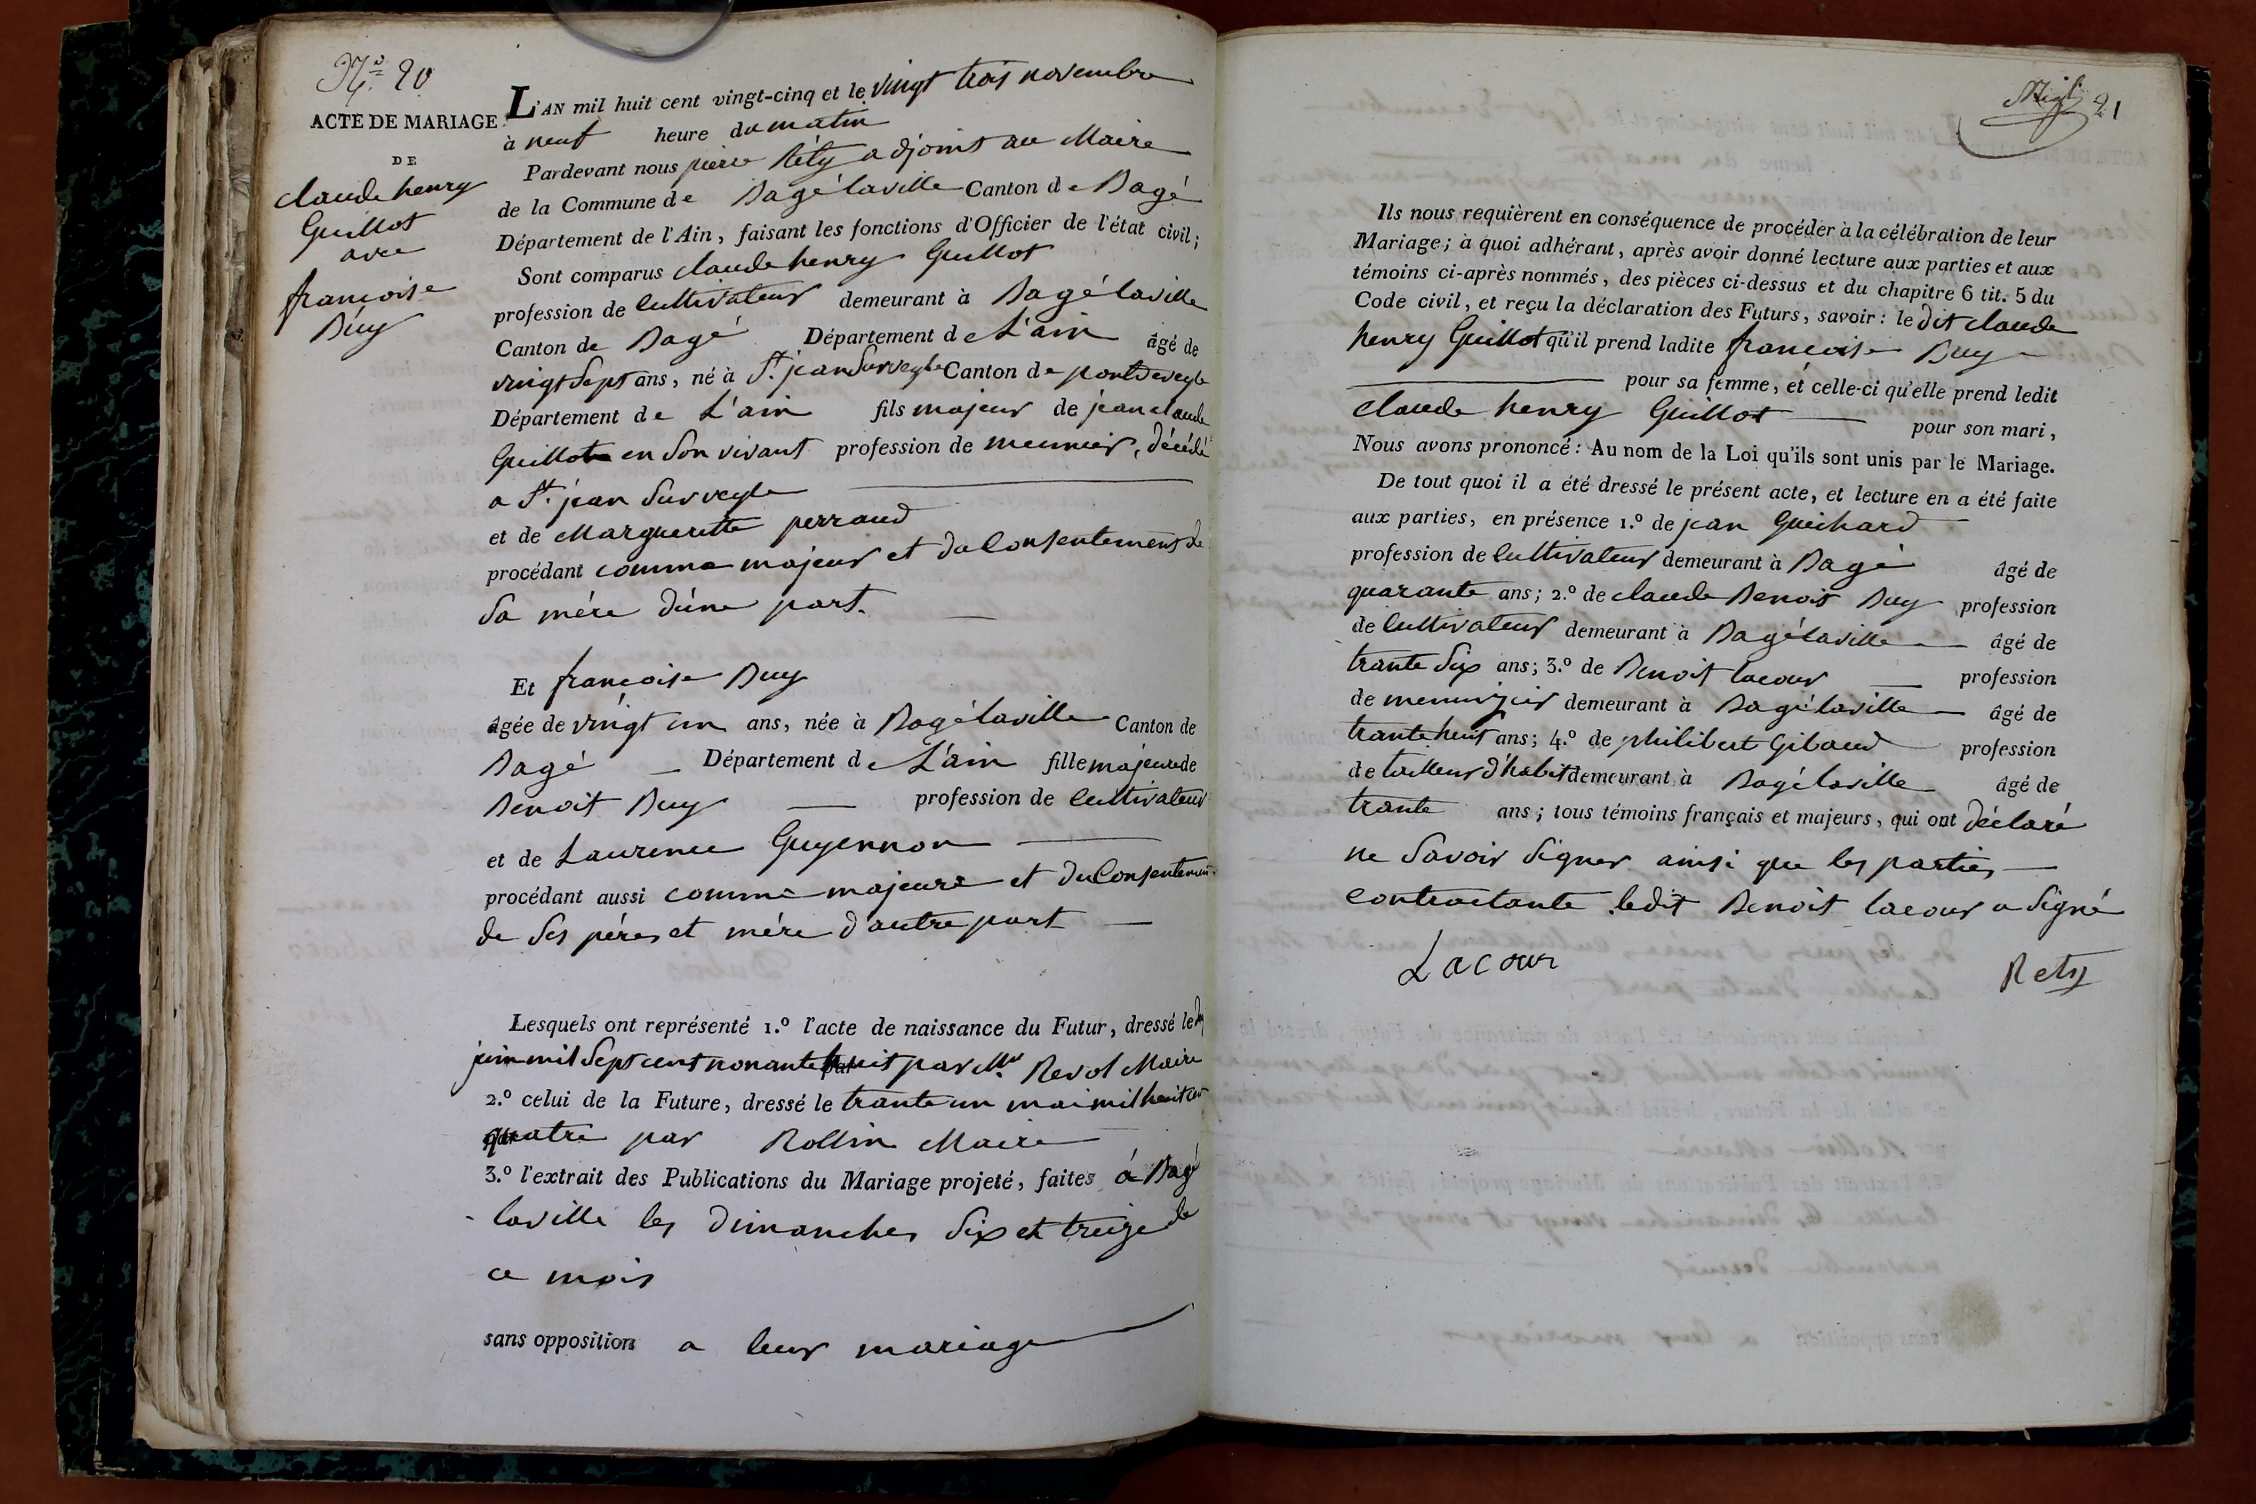 N.º 20
ACTE DE MARIAGE
DE
claude henry
Guillot
avec
françoise
Buy
L'AN mil huit cent vingt-cinq et le vingt trois novembre
à neuf heure du matin
Pardevant nous pierre Réty adjoint au Maire
de la Commune de Bagé laville Canton de Bagé
Département de l'Ain, faisant les fonctions d'Officier de l'état civil;
Sont comparus claude henry Guillot
profession de cultivateur demeurant à Bagé laville
Canton de Bagé Département de L'ain âgé de
vingt sept ans, né à St. jean Surveyle Canton de pontdeveyle
Département de L'ain fils majeur de jean claude
Guillot en son vivant profession de meunier, décédé
a St. jean Surveyle
et de Marguerite perraud
procédant comme majeur et du Consentement de
Sa mére d'une part.
Et françoise Buy
âgée de vingt un ans, née à Bagé laville Canton de
Bagé Département de L'ain fille majeure de
Benoit Buy profession de cultivateur
et de Laurence Guyennon
procédant aussi comme majeure et du Consentement
de Ses péres et mére d'autre part
Lesquels ont représenté 1.º l'acte de naissance du Futur, dressé le
juin mil Sept cent nonante huit par Mr. Revol Maire
2.º celui de la Future, dressé le trante un mai mil huit cent
quatre par Rollin Maire
3.º l'extrait des Publications du Mariage projeté, faites à Bagé
laville les dimanches Six et treize de
ce mois
sans opposition a leur mariage
21
Ils nous requièrent en conséquence de procéder à la célébration de leur
Mariage; à quoi adhérant, après avoir donné lecture aux parties et aux
témoins ci-après nommés, des pièces ci-dessus et du chapitre 6 tit. 5 du
Code civil, et reçu la déclaration des Futurs, savoir: le dit claude
henry Guillot qu'il prend ladite françoise Buy
pour sa femme, et celle-ci qu'elle prend ledit
claude henry Guillot pour son mari,
Nous avons prononcé: Au nom de la Loi qu'ils sont unis par le Mariage.
De tout quoi il a été dressé le présent acte, et lecture en a été faite
aux parties, en présence 1.º de jean Guichard
profession de cultivateur demeurant à Bagé âgé de
quarante ans; 2.º de claude Benoit Buy profession
de cultivateur demeurant à Bagé laville âgé de
trante Six ans; 3.º de Benoit lacour profession
de menuizier demeurant à Bagé laville âgé de
trante huit ans; 4.º de philibert Gibaud profession
de tailleur d'habit demeurant à Bagé laville âgé de
trante ans; tous témoins français et majeurs, qui ont déclaré
ne Savoir Signer ainsi que les parties
contractante ledit Benoit lacour a Signé
Lacour Rety